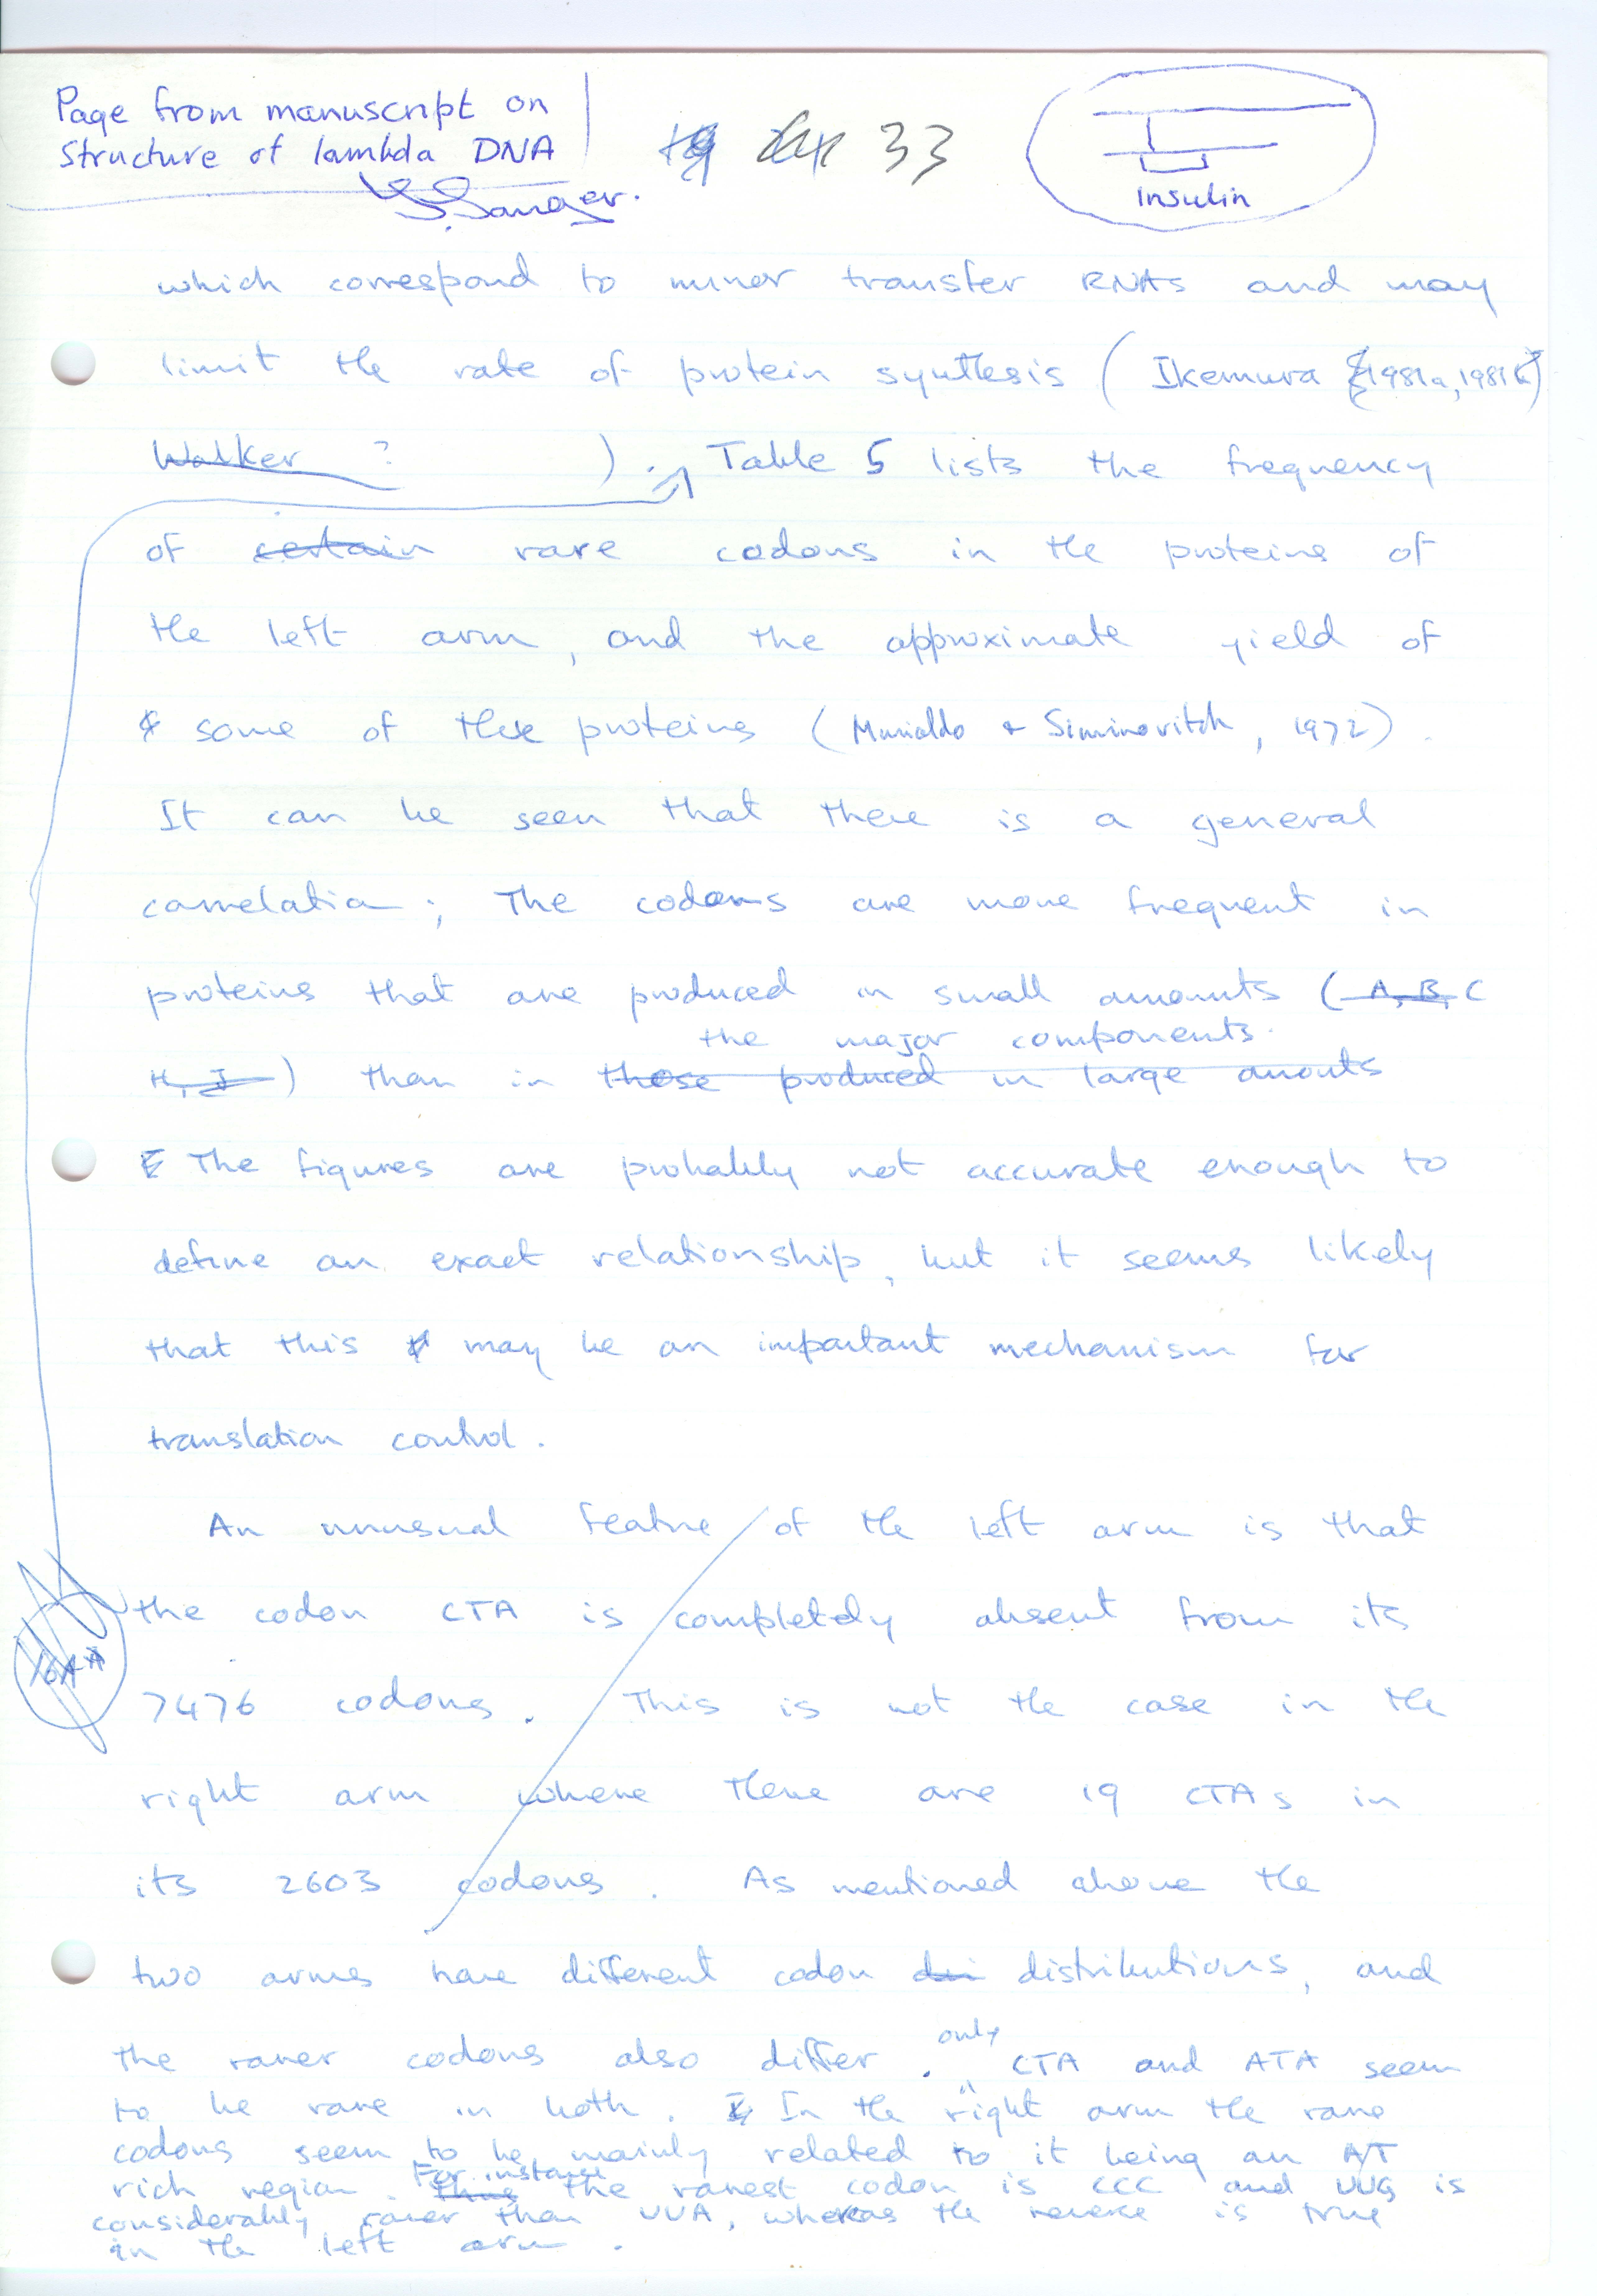 Page from manuscript on
Structure of lambda DNA
F. Sanger.
33
Insulin
which correspond to minor transfer RNAs and may
limit the rate of protein synthesis (Ikemura 1981a, 1981b)
Walker ? ). Table 5 lists the frequency
of certain rare codons in the proteins of
the left arm, and the approximate yield of
some of these proteins (Murialdo + Siminovitch, 1972).
It can be seen that there is a general
correlation; The codons are more frequent in
proteins that are produced in small amounts (A, B, C
the major components.
H, J) than in those produced in large amouts
The figures are probably not accurate enough to
define an exact relationship, but it seems likely
that this may be an important mechanism for
translation control.
An unusual feature of the left arm is that
the codon CTA is completely absent from its
7476 codons. This is not the case in the
right arm where there are 19 CTAs in
its 2603 codons. As mentioned above the
two arms have different codon distributions, and
only
the rarer codons also differ. CTA and ATA seem
to be rare in both. In the right arm the rare
codons seem to be mainly related to it being an AT
For instance
rich region. Thus the rarest codon is CCC and UUG is
considerably rarer than UUA, whereas the reverse is true
in the left arm.